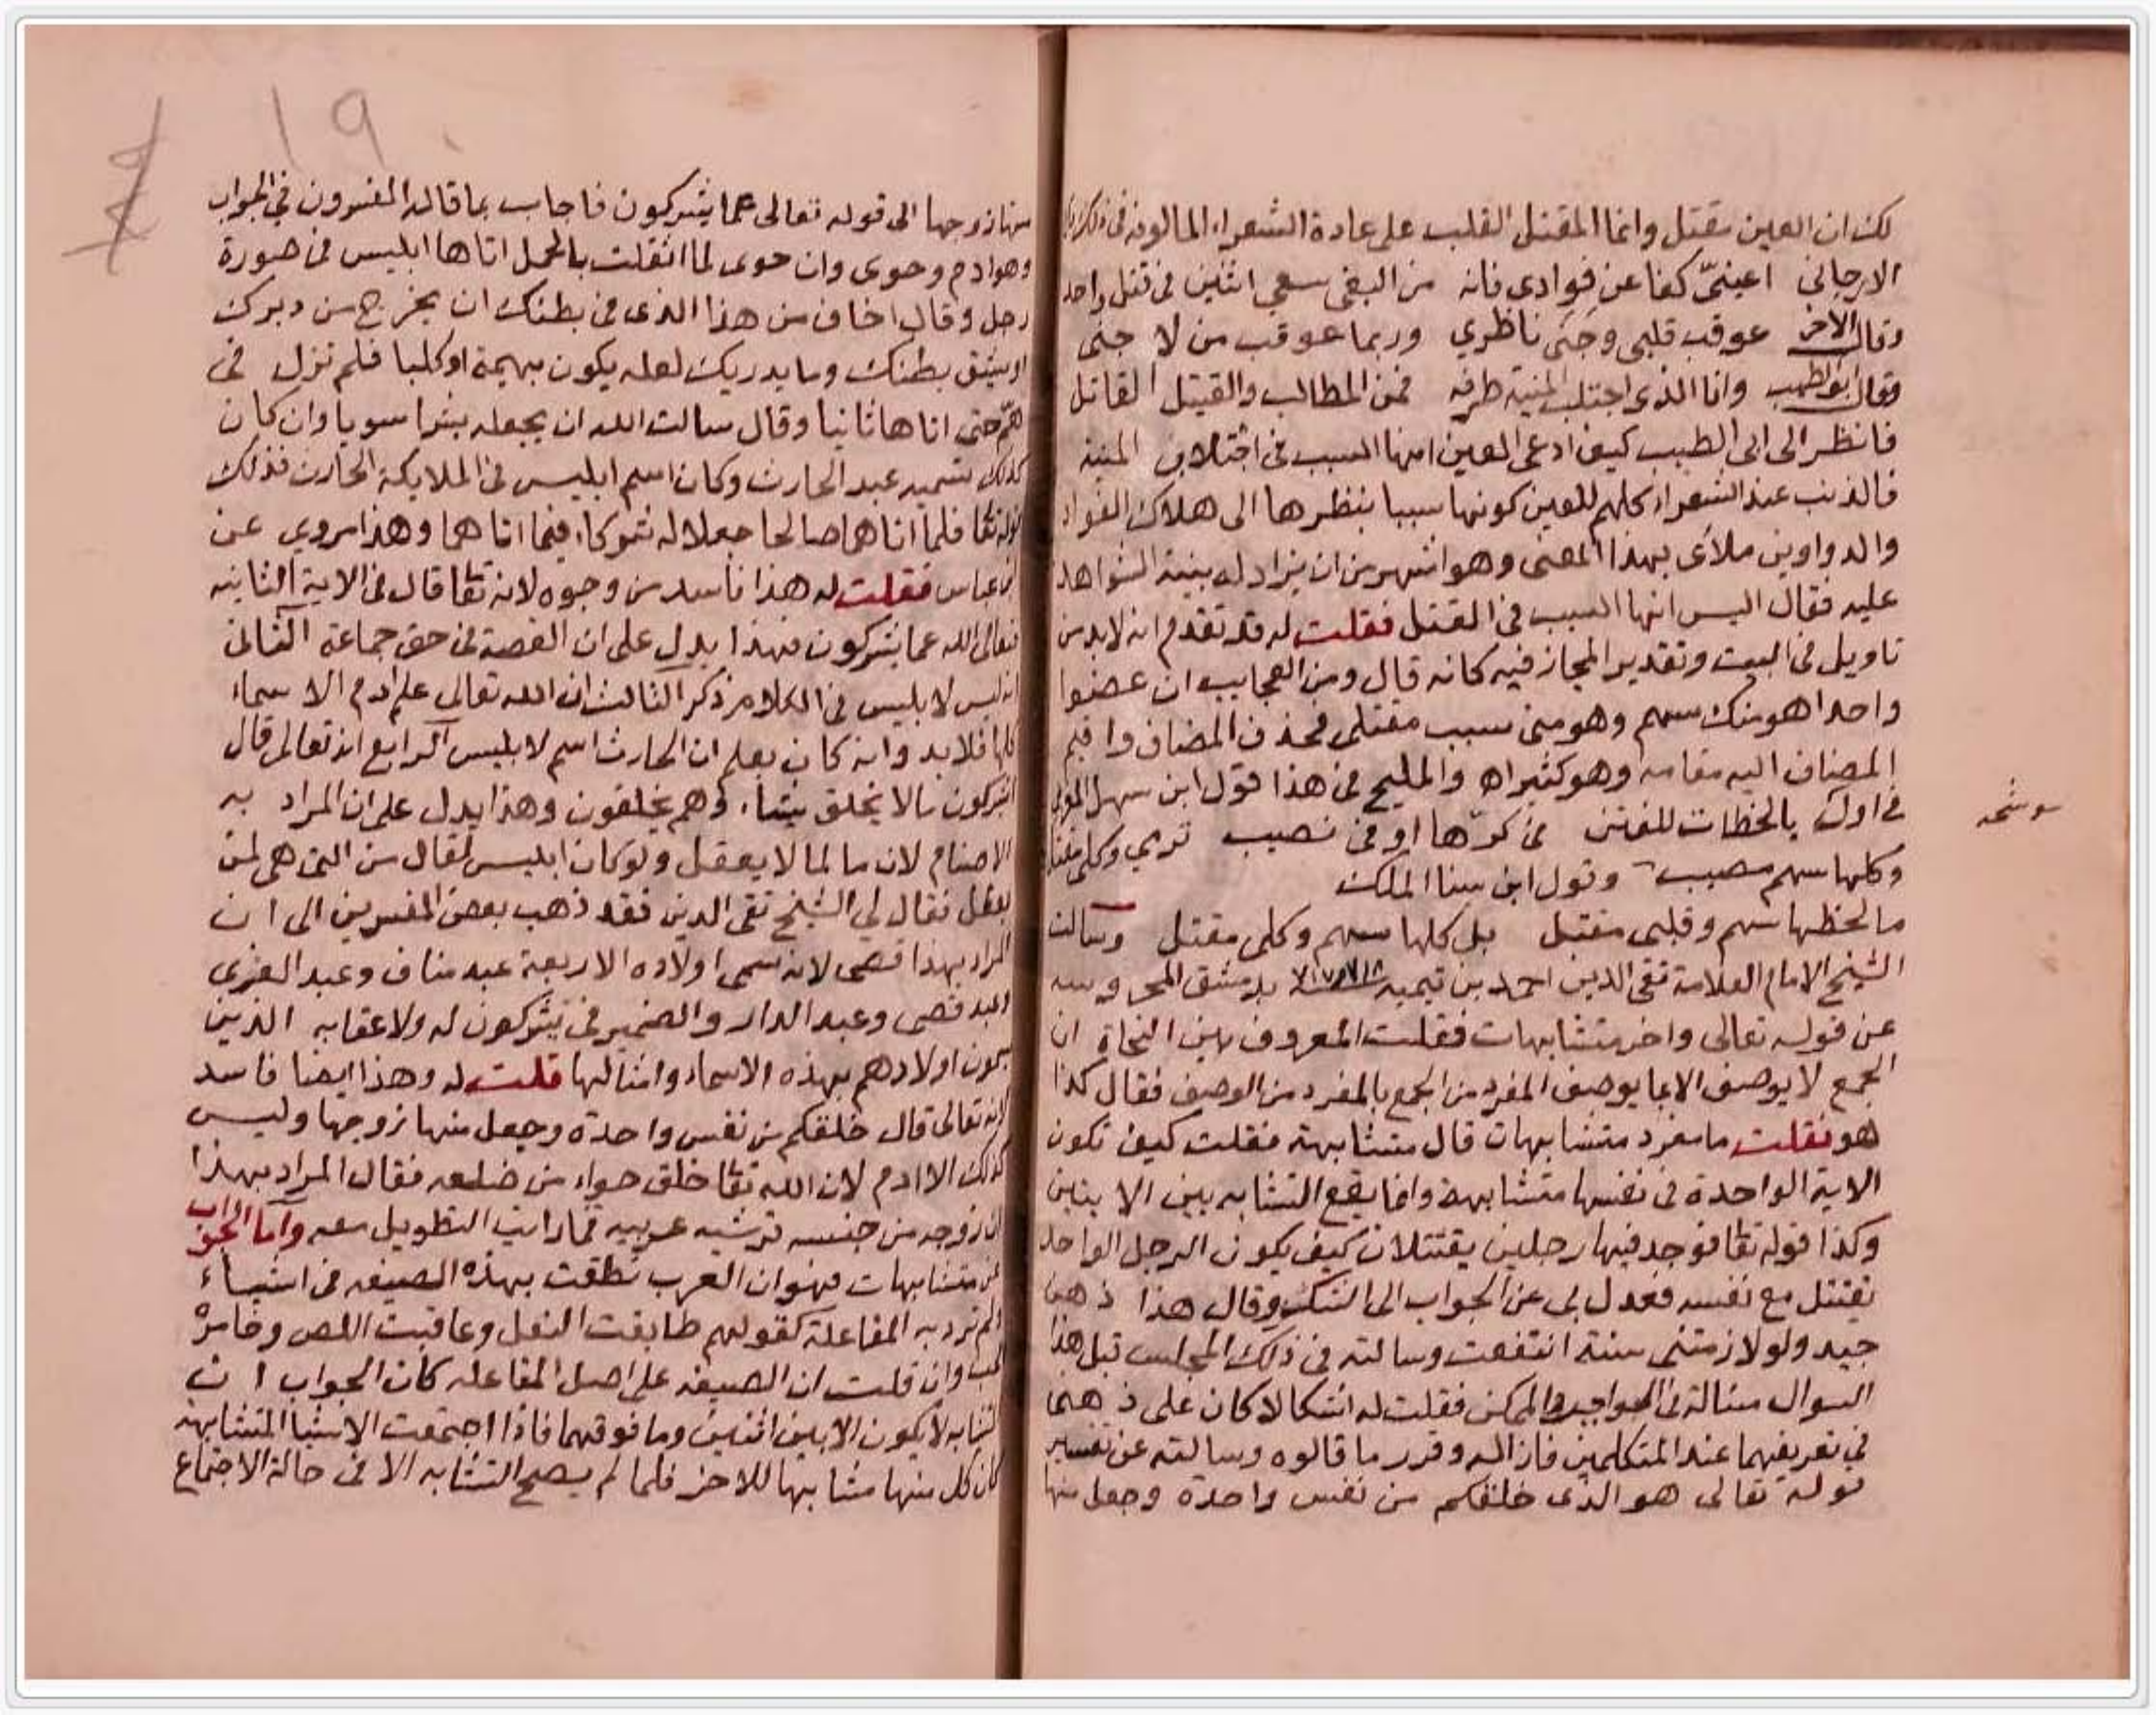 لك ان العين مقتل وانما المقتل القلب على عادة الشعراء المالوفة في ذلك
الارجاني اعينيّ كفا عن فوادى فانه من البغى سعى اثنين فى قتل واحد
وقال الاخر عوقب قلبى وجنى ناظري وربما عوقب من لا جنى
وقال ابو الطيب وانا الذى اجتلب المنية طرفه فمن المطالب والقتيل القاتل
فانظر الى ابى الطيب كيف ادعى للعين انها السبب فى اجتلاب المنية
فالذنب عند الشعراء كلهم للعين كونها سببا بنظرها الى هلاك الفواد
والدواوين ملاى بهذا المعنى وهو اشهر من ان يزاد له بينة الشواهد
عليه فقال اليس انها السبب فى القتل فقلت له قد تقدم انه لابد من
تاويل فى البيت وتقدير المجاز فيه كانه قال ومن العجايب ان عضوا
واحدا هو منك سهم وهو منى سبب مقتلى فحذف المضاف واقيم
المضاف اليه مقامه وهو كثير اه والمليح فى هذا قول ابن سهل
بالحظات للفتن فى كرّها اوفى نصيب ترمي وكلى مقتل
موشحه
وكلها سهم مصيب وقول ابن سنا الملك
ما لحظها سهم وقلبى مقتل بل كلها سهم وكلى مقتل وسالت
الشيخ الامام العلامة تقى الدين احمد بن تيميه بدمشق المحروسه
عن قوله تعالى واخر متشابهات فقلت المعروف بين النحاة ان
الجمع لا يوصف الا بما يوصف المفرد من الجمع بالمفرد من الوصف فقال كذا
هو فقلت ما مفرد متشابهات قال متشابهة فقلت كيف تكون
الاية الواحدة فى نفسها متشابهة وانما يقع التشابه بين الايتين
وكذا قوله تعا فوجد فيها رجلين يقتتلان كيف يكون الرجل الواحد
يقتتل مع نفسه فعدل بى عن الجواب الى الشكر وقال هذا ذهن
جيد ولو لازمتنى سنة انتفعت وسالته فى ذلك المجلس قبل هذا
السوال مسالة فى الواجب والممكن فقلت له اشكالا كان على ذهنى
في تعريفهما عند المتكلمين فازاله وقرر ما قالوه وسالته عن تفسير
قوله تعالى هو الذى خلقكم من نفس واحدة وجعل منها
19
منها زوجها الى قوله تعالى عما يشركون فاجاب بما قاله المفسرون في الجواب
وهو ادم وحوى وان حوى لما اثقلت بالحمل اتاها ابليس فى صورة
رجل وقال اخاف من هذا الذى فى بطنك ان يخرج من دبرك
او يشق بطنك وما يدريك لعله يكون بهيمة او كلبا فلم تزل فى
همّ حتى اتاها ثانيا وقال سالت الله ان يجعله بشرا سويا وان كان
كذلك تسميه عبد الحارث وكان اسم ابليس فى الملايكة الحارث فذلك
قوله تعا فلما اتاهما صالحا جعلا له شركاء فيما اتاهما وهذا مروي عن
ابن عباس فقلت له هذا فاسد من وجوه لانه تعا قال فى الاية الثانيه
فتعالى الله عما يشركون فهذا يدل على ان القصة فى حق جماعة الثانى
انه ليس لابليس فى الكلام ذكر الثالث ان الله تعالى علم ادم الاسماء
كلها فلابد وانه كان يعلم ان الحارث اسم لابليس الرابع انه تعالى قال
ايشركون ما لا يخلق شيئا وهم يخلقون وهذا يدل على ان المراد به
الاصنام لان ما لما لا يعقل ولو كان ابليس لقال من التى هى لمن
يعقل فقال لي الشيخ تقى الدين فقد ذهب بعض المفسرين الى ان
المراد بهذا قصى لانه سمى اولاده الاربعة عبد مناف وعبد العزى
وعبد قصى وعبد الدار والضمير فى يشركون له ولاعقابه الذين
يسمون اولادهم بهذه الاسماء وامثالها قلت له وهذا ايضا فاسد
لانه تعالى قال خلقكم من نفس واحدة وجعل منها زوجها وليس
كذلك الا ادم لان الله تعا خلق حواء من ضلعه فقال المراد بهذا
ان زوجه من جنسه قرشيه عربيه فما رايت التطويل معه واما الجواب
عن متشابهات فهو ان العرب نطقت بهذه الصيغه فى اشياء
لم ترد به المفاعلة كقولهم طابقت النعل وعاقبت اللص وخامره
الحب وان قلت ان الصيغه على اصل المفاعله كان الجواب ان
التشابه لا يكون الا بين اثنين وما فوقهما فاذا اجتمعت الاشيا المتشابهة
كان كل منها مشابها للاخر فلما لم يصح التشابه الا فى حالة الاجتماع